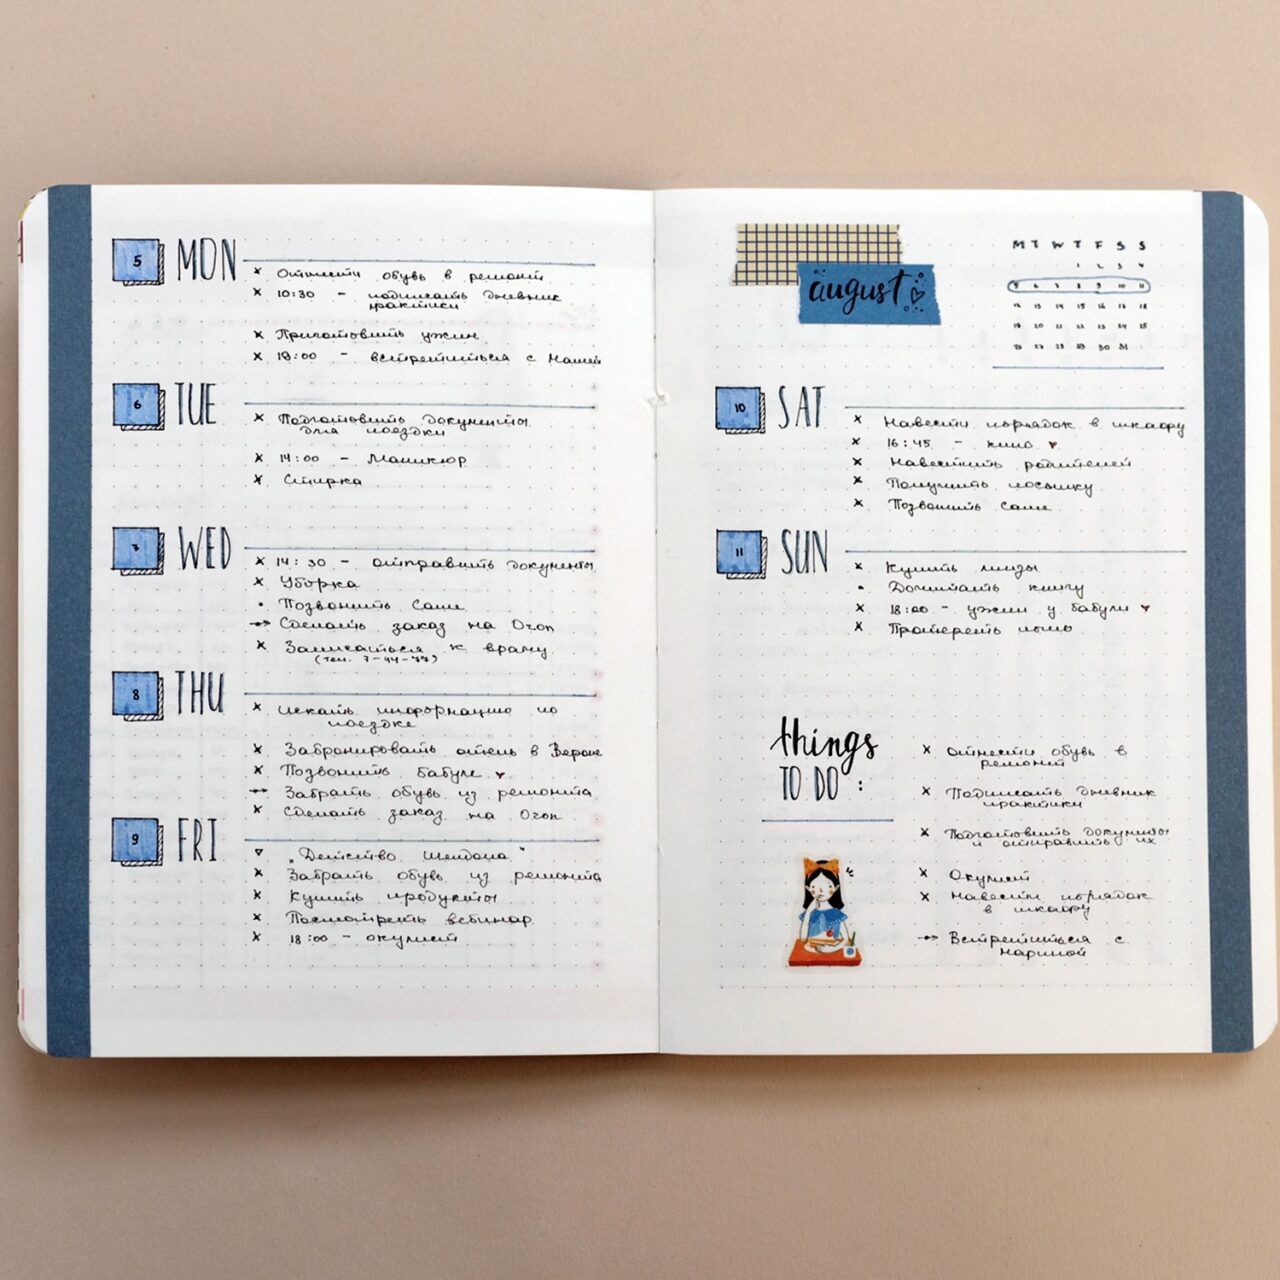 5 MON
x Отнести обувь в ремонт
x 10:30 - подписать дневник
практики
x Приготовить ужин
x 19:00 - встретиться с Машей
6 TUE
x Подготовить документы
для поездки
x 14:00 - Маникюр
x Стирка
7 WED
x 14:30 - отправить документы
x Уборка
• Позвонить Саше
→ Сделать заказ на Ozon
x Записаться к врачу
(тел. 7-44-77)
8 THU
x Искать информацию по
поездке
x Забронировать отель в Вероне
x Позвонить бабуле ♥
→ Забрать обувь из ремонта
x Сделать заказ на Ozon
9 FRI
▽ „Детство Шелдона"
x Забрать обувь из ремонта
x Купить продукты
x Посмотреть вебинар
x 18:00 - окулист
august ♡
M T W T F S S
1 2 3 4
5 6 7 8 9 10 11
12 13 14 15 16 17 18
19 20 21 22 23 24 25
26 27 28 29 30 31
10 SAT
x Навести порядок в шкафу
x 16:45 - кино ♥
x Навестить родителей
x Получить посылку
x Позвонить Саше
11 SUN
x Купить линзы
• Дочитать книгу
x 18:00 - ужин у бабули ♥
x Протереть пыль
things
TO DO :
x Отнести обувь в
ремонт
x Подписать дневник
практики
x Подготовить документы
и отправить их
x Окулист
x Навести порядок
в шкафу
→ Встретиться с
Мариной